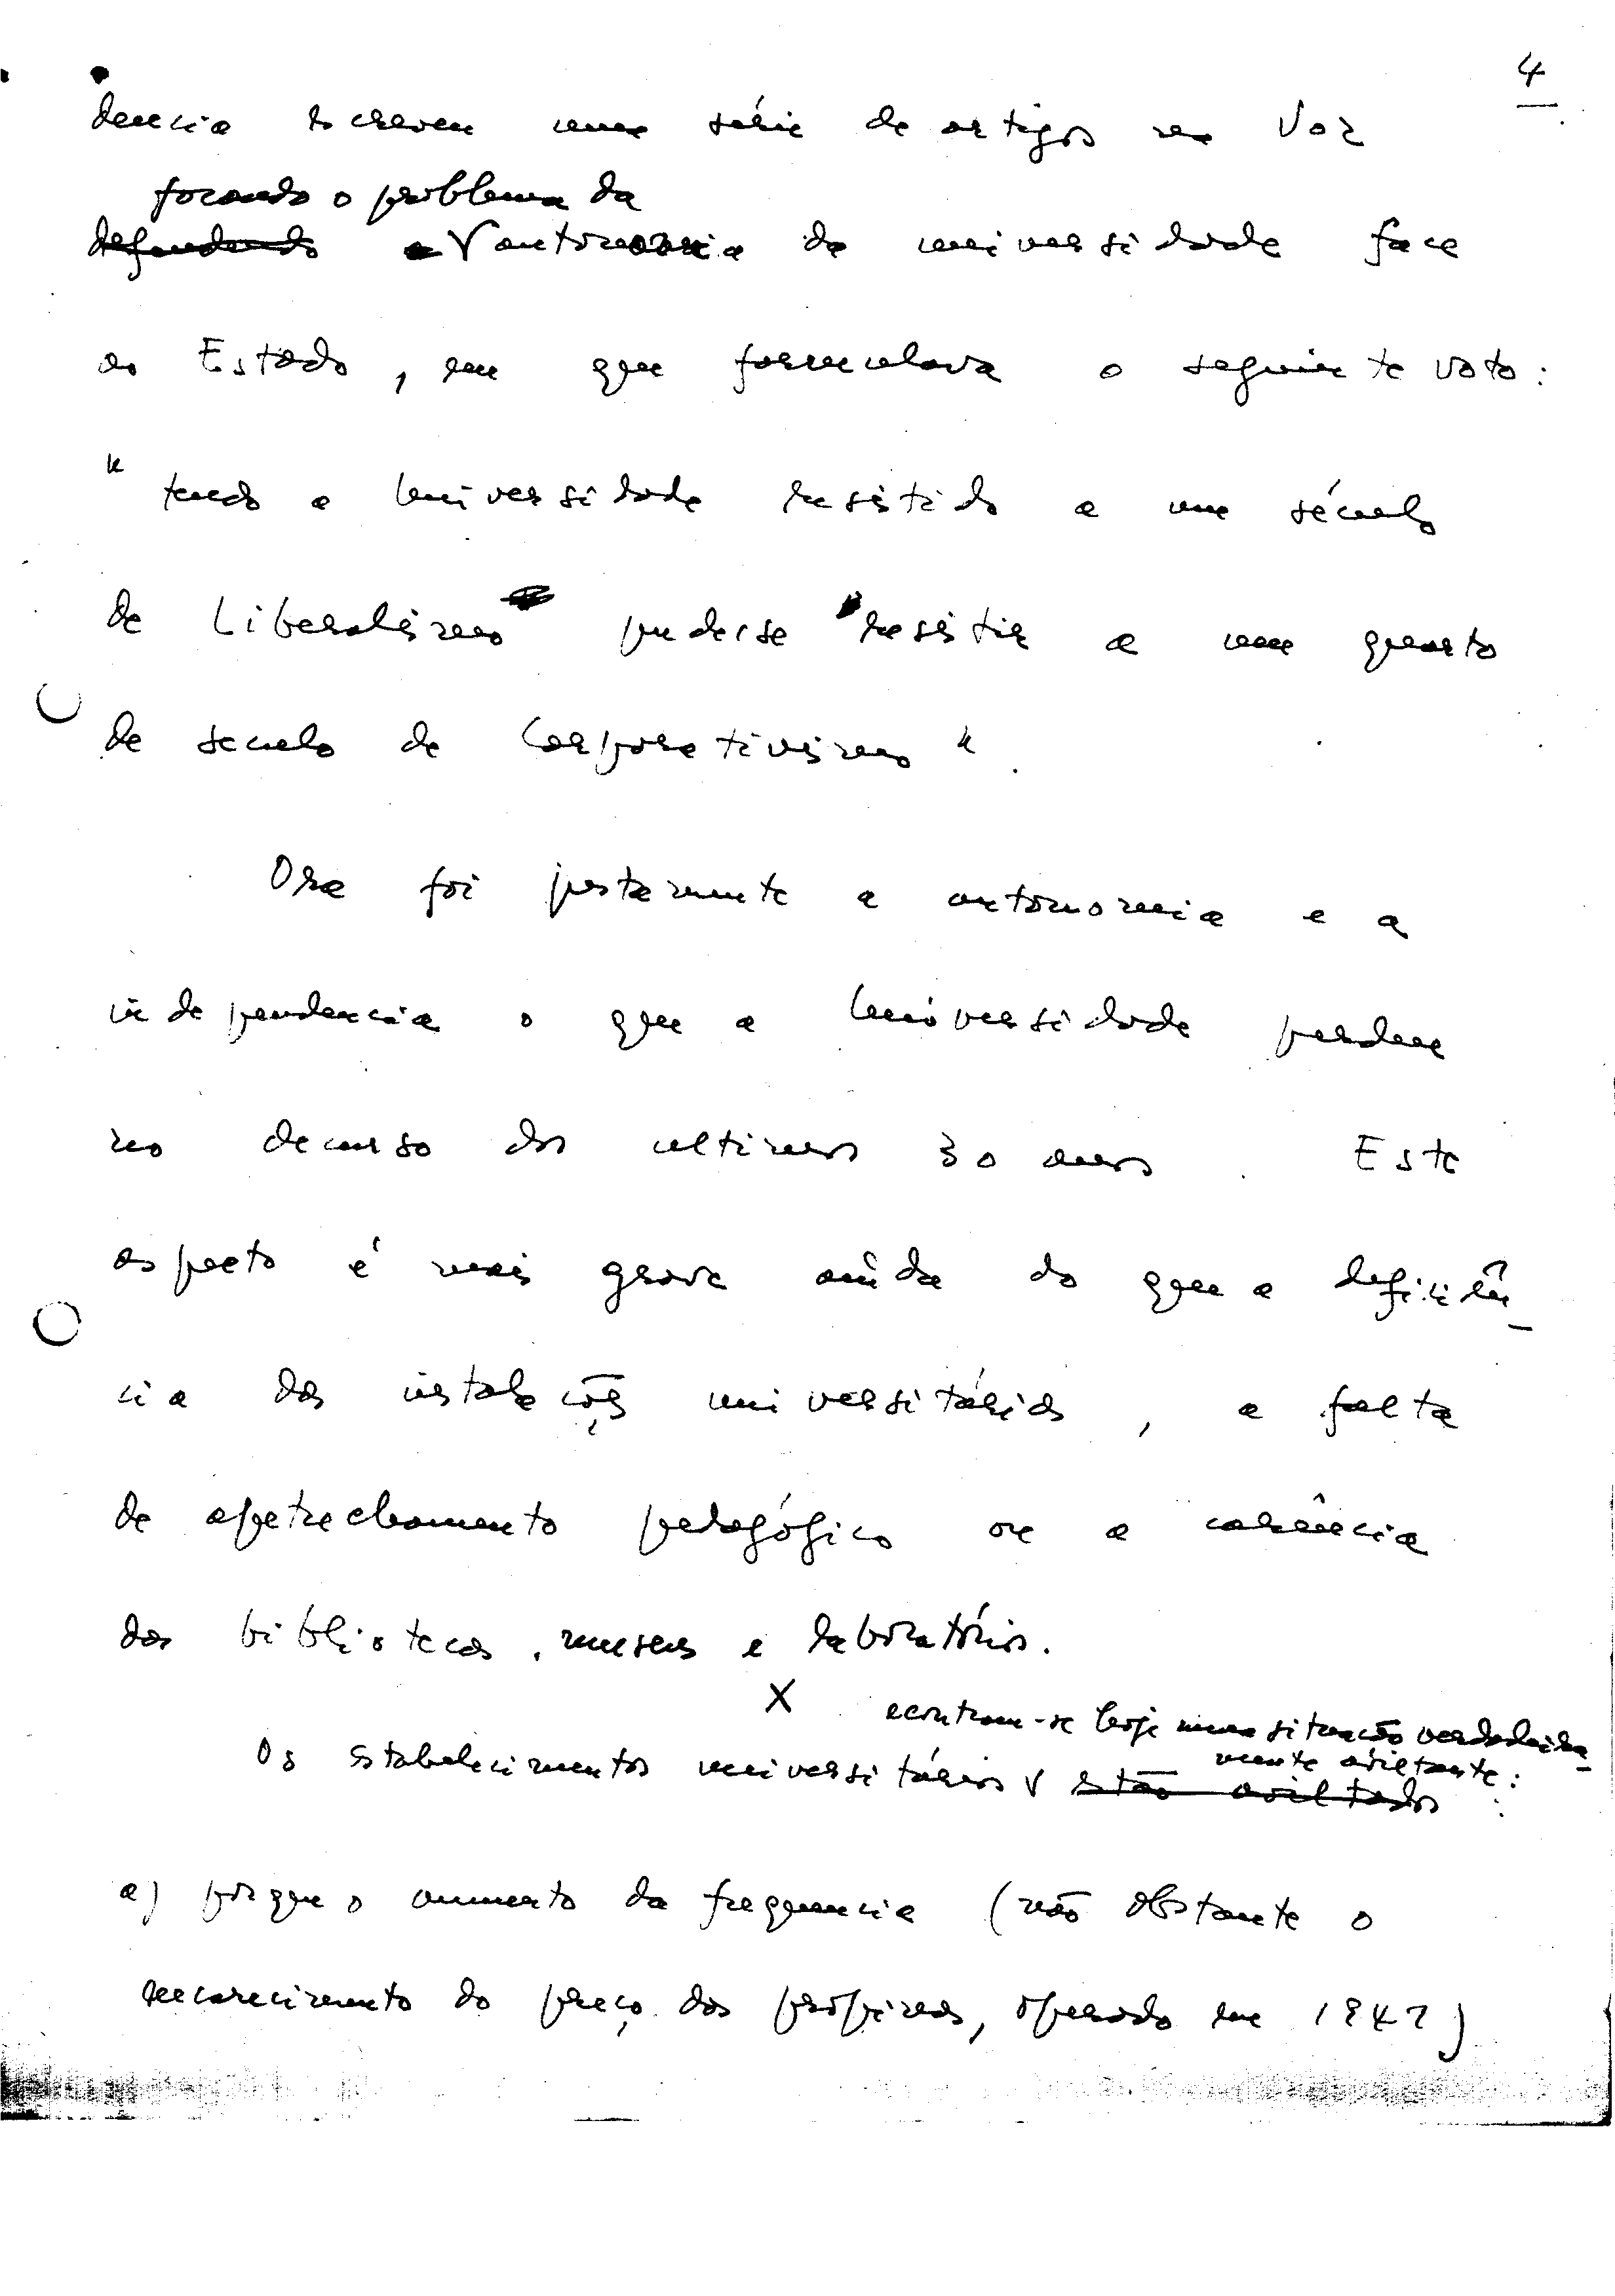 4
dencia escreveu uma série de artigos na Voz
focando o problema da
defendendo a V autonomia da universidade face
ao Estado, em que formulava o seguinte voto:
" tendo a Universidade resistido a um século
de Liberalismo pudesse resistir a um quarto
de seculo de Corporativismo ".
Ora foi justamente a autonomia e a
independencia o que a Universidade perdeu
no decurso dos ultimos 30 anos. Este
aspecto é mais grave ainda do que a deficiên-
cia das instalações universitárias, a falta
de apetrechamento pedagógico ou a carência
das bibliotecas, museus e laboratórios.
X econtram-se hoje numa situação verdadeira-
mente aviltante:
Os estabelecimentos universitários V estão aviltados
a) porque o aumento da frequencia (não obstante o
encarecimento do preço das propinas, operado em 1947)